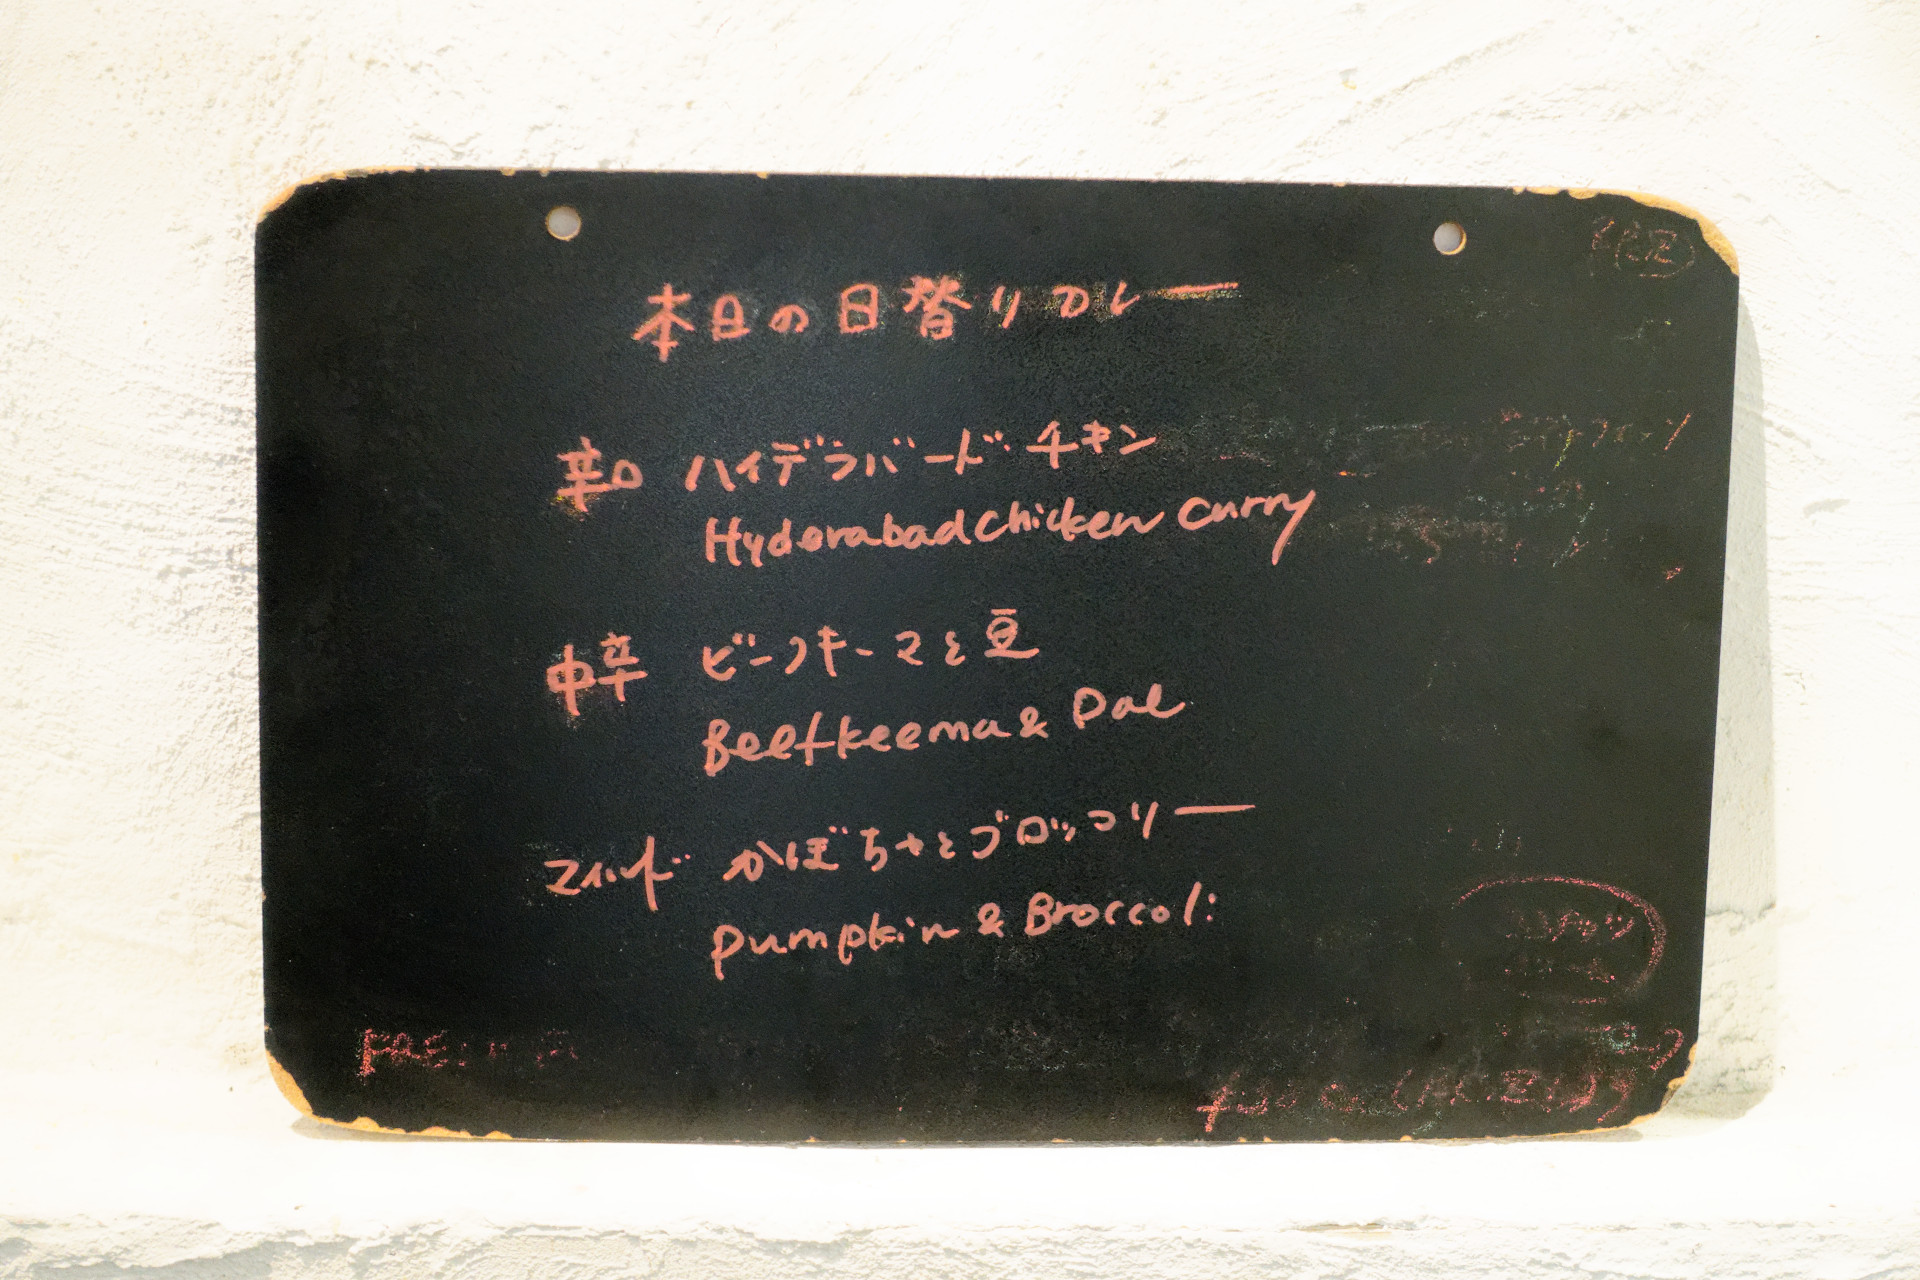 本日の日替りカレー
辛口 ハイデラバードチキン
Hyderabad chicken curry
中辛 ビーフキーマと豆
Beef keema & Dal
マイルド かぼちゃとブロッコリー
pumpkin & Broccoli